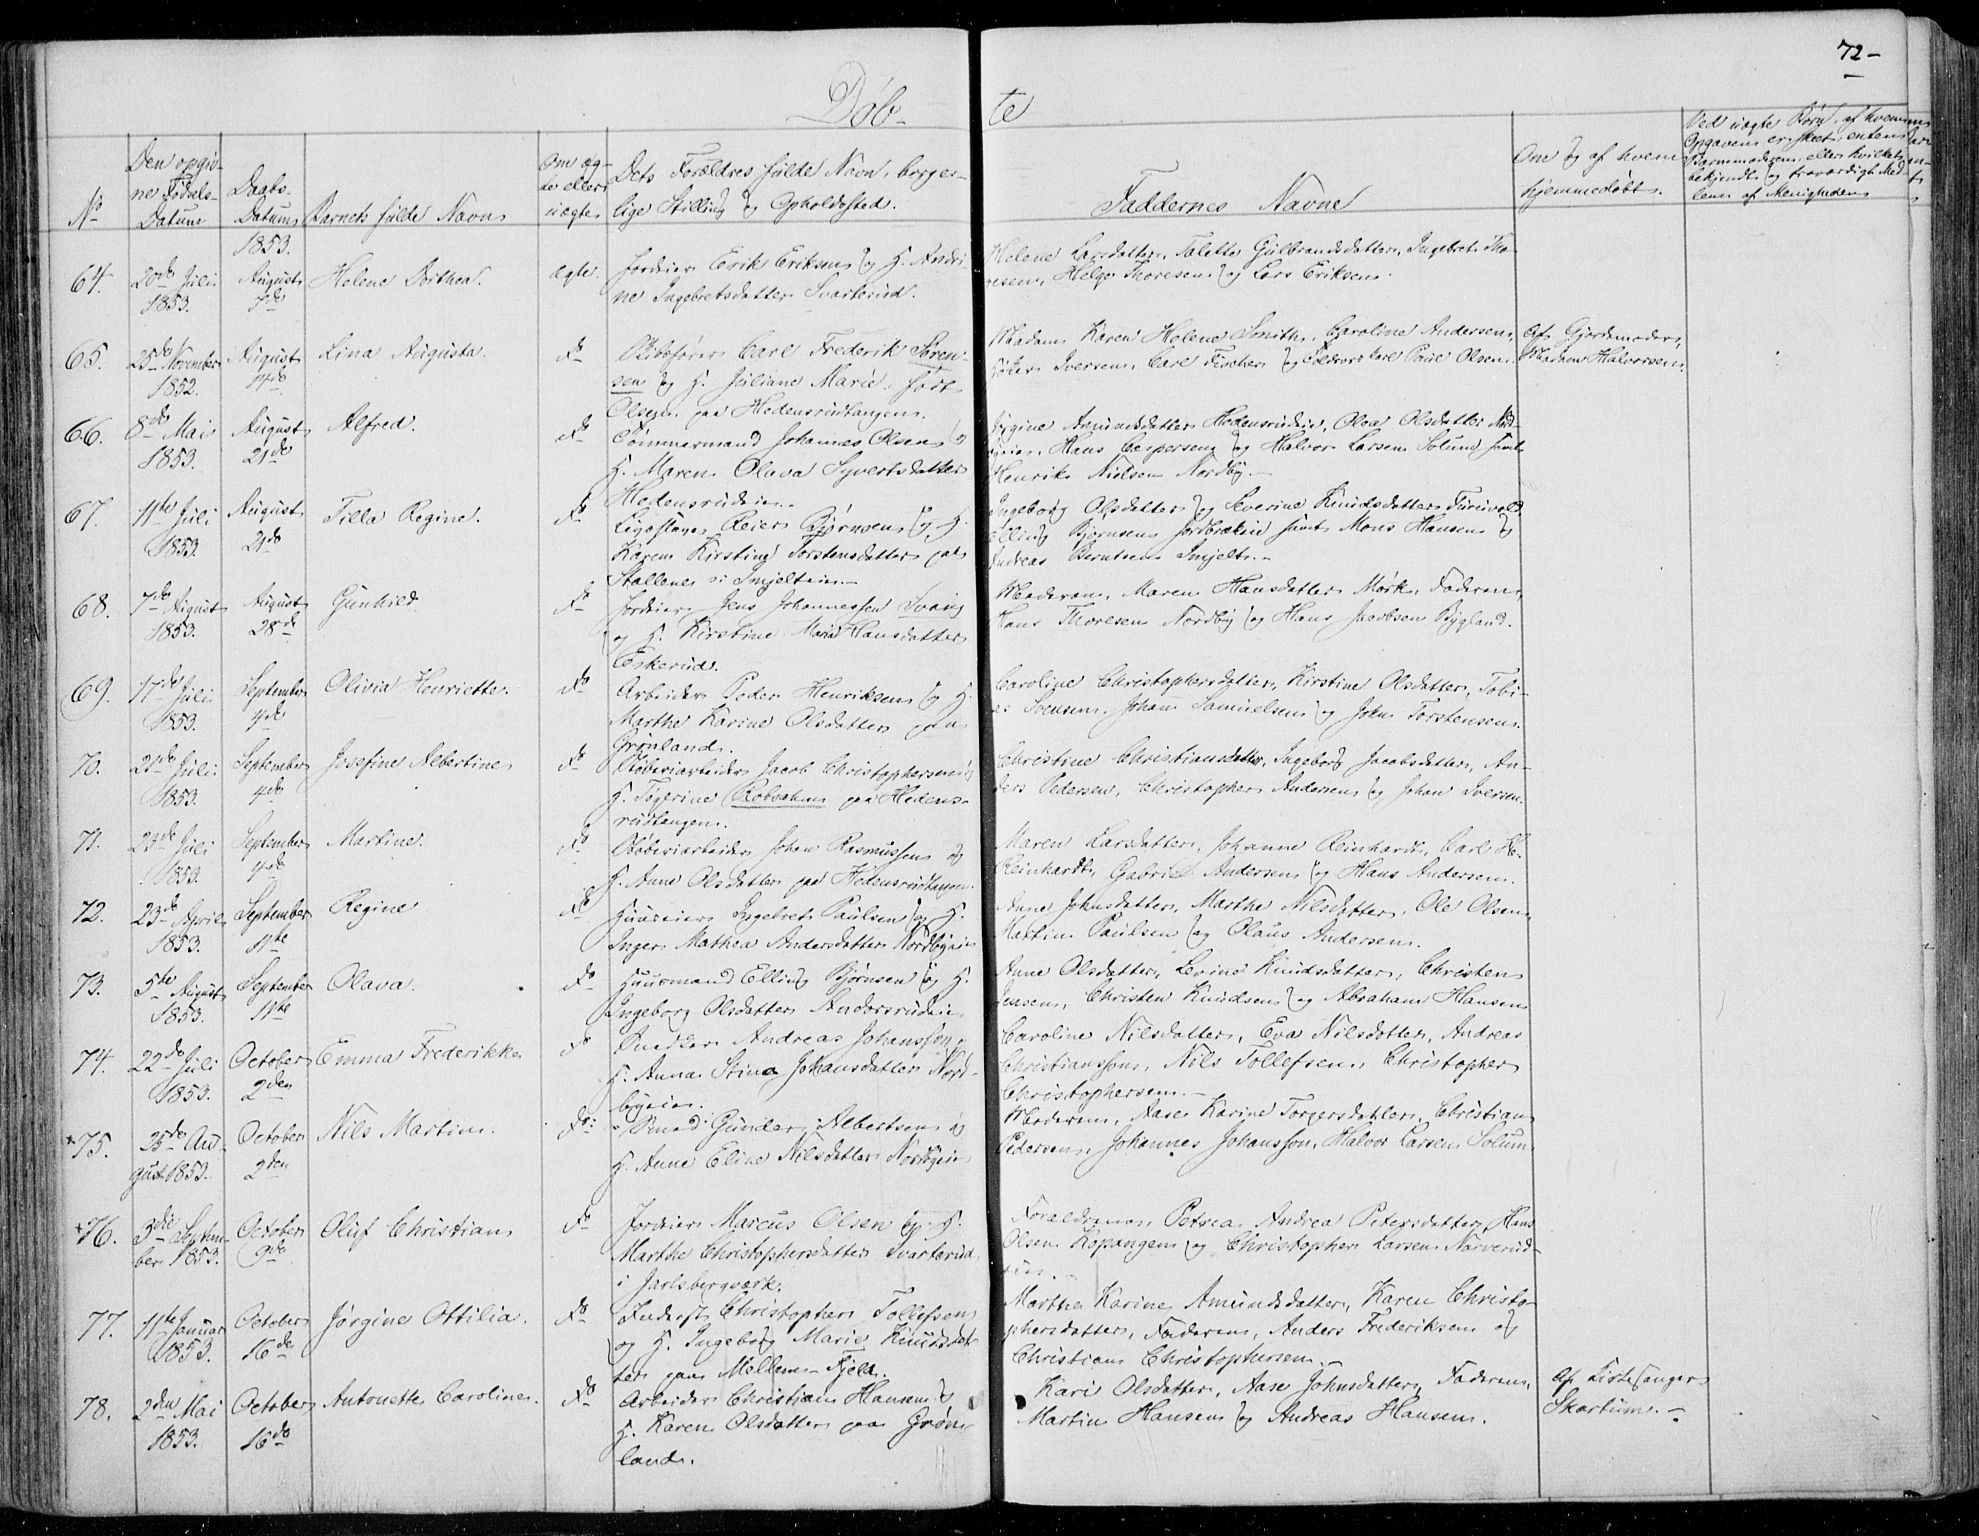 72-
Døb-
te
No
Den opgiv-
ne Fødsels-
Datum
Daabs-
Datum
Barnets fulde Navn
Om æg-
te eller
uægte
Dets Forældres fulde Navn, borger-
lige Stilling og Opholdssted.
Faddernes Navne
Om og af hvem
hjemmedøbt.
Ved uægte Børn, af hvem
Opgaven er skeet, enten
Barnemoderen eller hvilket
bekjendt og troværdigt Med-
lem af Menigheden
1853.
64.
20de Juli
1853.
August
7de
Helene Dorthea.
ægte.
Jordeier Erik Eriksen og H. Andri-
ne Ingebretsdatter Svarterud.
Helene Larsdatter, Tolette Gulbrandsdatter, Ingebret Tho-
resen, Helge Thoresen og Lars Eriksen.
65.
25de November
1852.
August
14de
Lina Augusta.
do
Carl Frederik Søren-
sen og H. Juliane Marie, født
Olsen paa Hedensrudtangen.
Madam Karen Helene Smith, Caroline Andersen,
Iversen, Carl Fischer og Poul Olsen.
Af Gjordemoder
Madam Halvorsen.
66.
8de Mai
1853.
August
21de
Alfred.
do
Tømmermand Johannes Olsen og
H. Maren Olava Syvertsdatter
Hedensrudeie.
Jørgine Amundsdatter Hedensrudeie, Olea Olsdatter Nord-
byeie, Hans Caspersen og Halvor Larsen Solum samt
Henrik Nielsen Nordby.-
67.
11te Juli
1853.
August
21de
Tilla Regine.
do
Reier Bjørnsen og H.
Karen Kirstine Torstensdatter paa
Stallene i Smjelteie.-
Ingeborg Olsdatter og Severine Knudsdatter Furuvold,
Elling Bjørnsen Jordbrække samt Mons Hansen og
Andreas Berntsen Smjelt.-
68.
7de August
1853.
August
28de
Gunhild.
do
Jordeier Jens Johannessen Svang
og H. Kirstine Maria Hansdatter
Eskerud.
Moderen, Maren Hansdatter Mørk, Faderen,
Hans Thoresen Nordby og Hans Jacobsen Bygland.
69.
17de Juli
1853.
September
4de
Olivia Henriette.
do
Arbeider Peder Henriksen og H.
Marthe Karine Olsdatter paa
Grønland.
Caroline Christophersdatter, Kirstine Olsdatter, Tobi-
as Svensen, Johan Samuelsen og John Torstensen.
70.
21de Juli
1853.
September
4de
Josefine Albertine
do
Støberiarbeider Jacob Christophersen og
H. Tegerine Robsahm paa Hedens-
rudtangen.
Christine Christiansdatter, Ingeborg Jacobsdatter, An-
ders Pedersen, Christopher Andersen og Johan Iversen.
71.
23de Juli
1853.
September
4de
Martine.
do
Støberiarbeider Johan Rasmussen og
H. Anne Olsdatter paa Hedensrudtangen.
Maren Larsdatter, Johanne Reinhardt, Carl
Reinhardt, Gabriel Andersen og Hans Andersen.
72.
23de April
1853.
September
11te
Regine
do
Huuseier Ingebret Paulsen og H.
Inger Mathea Andersdatter Nordbyeie
Anne Johnsdatter, Marthe Nilsdatter, Ole Olsen,
Martin Paulsen og Olaus Andersen.
73.
5te August
1853.
September
11te
Olava.
do
Huusmand Elling Bjørnsen og H.
Ingeborg Olsdatter Andorsrudeie
Anne Olsdatter, Levine Knudsdatter, Christen
Jensen, Christen Knudsen og Abraham Hansen
74.
22de Juli
1853.
October
2den
Emma Frederikke
do
Snedker Andreas Johansson og
H. Anna Stina Johansdatter Nord-
byeie.
Caroline Nilsdatter, Eva Nilsdotter, Andreas
Christiansson, Nils Tollefsen, Christopher
Christophersen.-
+75.
25de Au-
gust 1853.
October
2den
Nils Martin.
do
Smed Gunder Albertsen og
H. Anne Eline Nilsdatter Nordbyeie
Moderen, Aase Karine Torgersdatter, Christian
Pedersen, Johannes Johansson, Halvor Larsen Solum.
+76.
3die Septem-
ber 1853.
October
9de
Oluf Christian
do
Jordeier Marcus Olsen og H.
Marthe Christophersdatter Svarterud
i Jarlsbergværk.
Forældrene, Petrea Andrea Petersdatter, Hans
Olsen Kopangen og Christopher Larsen Narverud-
eie.
77.
11te Januar
1853.
October
16de
Jørgine Ottilia.
do
Inderst Christopher Tollefsen
og H. Ingeborg Marie Knudsdat-
ter paa Mellem-Fjeld.
Marthe Karine Amundsdatter, Karen Christo-
phersdatter, Faderen, Anders Frederiksen og
Christian Christophersen.
78.
2den Mai
1853.
October
16de
Antonette Caroline.
do
Arbeider Christian Hansen og
H. Karen Olsdatter paa Grøn-
land.
Kari Olsdatter, Aase Johnsdatter, Faderen,
Martin Hansen og Andreas Hansen.
Af Kirkesanger
Skartum.-